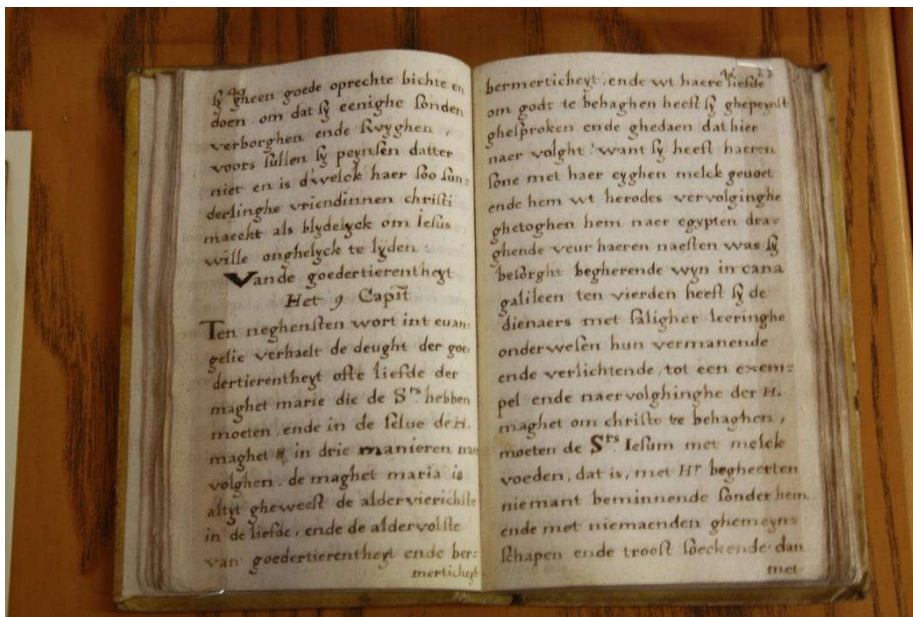 sy gheen goede oprechte bichte en
doen om dat sy eenighe sonden
verborghen ende swyghen,
voors sullen sy peynsen datter
niet en is d'welck haer soo sun=
derlinghe vriendinnen christi
maeckt als blydelyck om Iesus
wille onghelyck te lyden
Vande goedertierentheyt
Het 9 Capit̄
Ten neghensten wort int euan=
gelie verhaelt de deught der goe=
dertierentheyt ofte liefde der
maghet marie die de Srs hebben
moeten, ende in de selue de H.
maghet in drie manieren na
volghen. de maghet maria is
altyt gheweest de aldervierichste
in de liefde, ende de aldervolste
van goedertierentheyt ende ber=
merticheyt
23
bermerticheyt, ende wt haere liefde
om godt te behaghen heeft sy ghepeynst
ghesproken ende ghedaen dat hier
naer volght. want sy heeft haeren
sone met haer eyghen melck geuoet
ende hem wt herodes vervolginghe
ghetoghen hem naer egypten dra=
ghende veur haeren naesten was sy
besorght begherende wyn in cana
galileen ten vierden heeft sy de
dienaers met saligher leeringhe
onderwesen hun vermanende
ende verlichtende, tot een exem=
pel ende naervolghinghe der H.
maghet om christo te behaghen,
moeten de Srs Iesum met melck
voeden, dat is, met Hr begheerten
niemant beminnende sonder hem
ende met niemaenden ghemeyn=
schapen ende troost soeckende dan
met